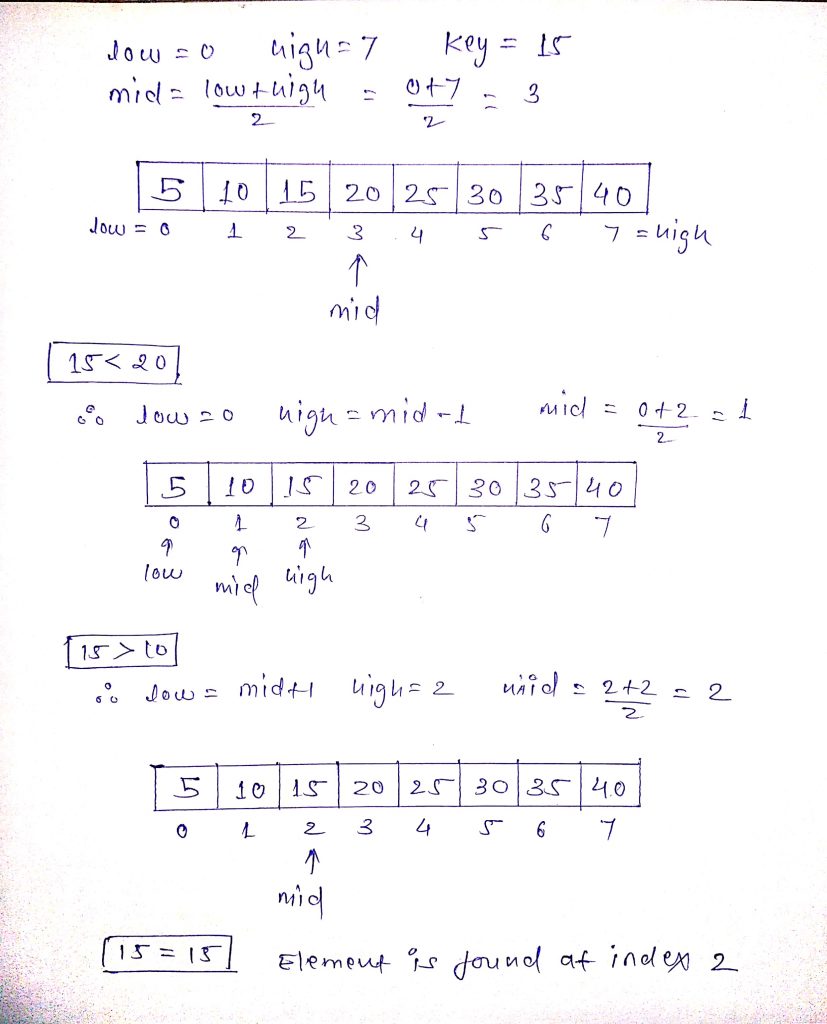 low = 0 high = 7 key = 15
mid = low+high = 0+7 = 3
2 2
5 10 15 20 25 30 35 40
low = 0 1 2 3 4 5 6 7 = high
↑
mid
15 < 20
∴ low = 0 high = mid - 1 mid = 0+2 = 1
2
5 10 15 20 25 30 35 40
0 1 2 3 4 5 6 7
↑ ↑ ↑
low mid high
15 > 10
∴ low = mid+1 high = 2 mid = 2+2 = 2
2
5 10 15 20 25 30 35 40
0 1 2 3 4 5 6 7
↑
mid
15 = 15 Element is found at index 2